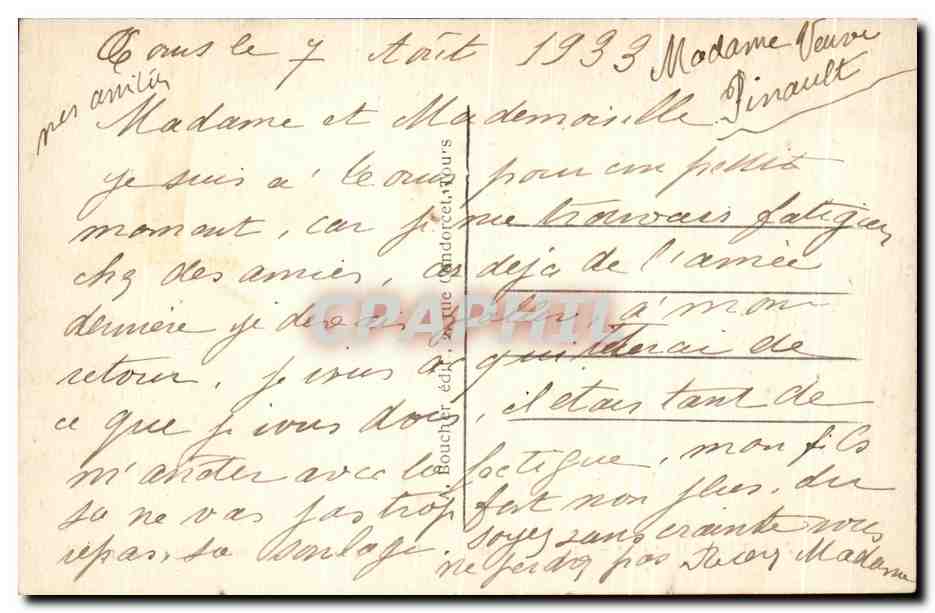 Tours le 7 Août 1933
Madame Veuve
Pinault
mes amitiés
Madame et Mademoiselle
je suis a Tours pour un petit
momont, car je me trouvais fatiguer
chez des amies, déja de l'année
dernière je devais aller, a mon
retour, je vous acquitterai de
ce que je vous dois, il etais tant de
m'arreter avec la fatigue, mon fils
sa ne vas pas trop fort non plus, du
repas, sa soulage. soyez sans crainte vous
ne perdez pas Madame
Boucher édit., rue Condorcet, Tours
CPAPHIL